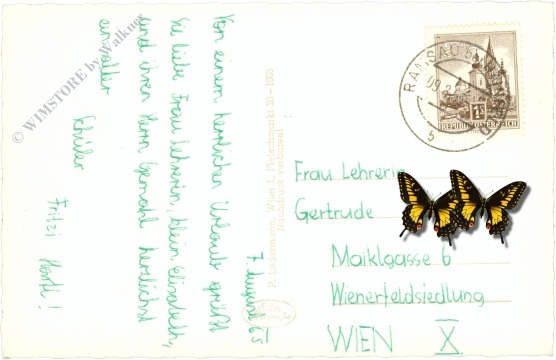 7. August 65
Von einem herrlichen Urlaub grüßt
Sie liebe Frau Lehrerin, klein Elisabeth,
und ihren Herrn Gemahl herzlichst
ein alter
Schüler
Fritzi
Frau Lehrerin
Gertrude
Maiklgasse 6
Wienerfeldsiedlung
WIEN X.
P. Ledermann, Wien I, Fleischmarkt 20 – 1965
Nachdruck verboten!
RAMSAU
REPUBLIK ÖSTERREICH
© WIMSTORE by Walkner